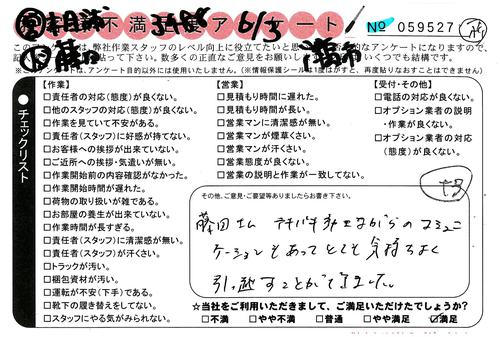 不満 度アンケート
6/3
№ 059527
このアンケートは、弊社作業スタッフのレベル向上に役立てたいと思
的なアンケートになりますので、
貼って下さい。数多くの正直なご意見をお願いし
いくつでも結構です。
※このアンケートは、アンケート目的以外には使用いたしません。（※情報保護シールは1度はがすと、再度貼りなおすことはできません）
チェックリスト
【作業】
□責任者の対応(態度)が良くない。
□他のスタッフの対応(態度)が良くない。
□作業を見ていて不安がある。
□責任者(スタッフ)に好感が持てない。
□お客様への挨拶が出来ていない。
□ご近所への挨拶・気遣いが無い。
□作業開始前の内容確認がなかった。
□作業開始時間が遅れた。
□荷物の取り扱いが雑である。
□お部屋の養生が出来ていない。
□作業時間が長すぎる。
□責任者(スタッフ)に清潔感が無い。
□責任者(スタッフ)が汗くさい。
□トラックが汚い。
□梱包資材が汚い。
□運転が不安(下手)である。
□靴下の履き替えをしてない。
□スタッフにやる気がみられない。
【営業】
□見積もり時間に遅れた。
□見積もり時間が長い。
□営業マンに清潔感が無い。
□営業マンが煙草くさい。
□営業マンが汗くさい。
□営業態度が良くない。
□営業の説明と作業が一致してない。
【受付・その他】
□電話の対応が良くない。
□オプション業者の説明
・作業が良くない。
□オプション業者の対応
(態度)が良くない。
その他、ご意見・ご要望等ありましたらお書き下さい。
藤田さん テキパキ
ながらのコミュニ
ケーションもあってとても気持ちよく
引っ越すことができました。
☆当社をご利用いただきまして、ご満足いただけたでしょうか？
□不満 □やや不満 □普通 □やや満足 ☑満足